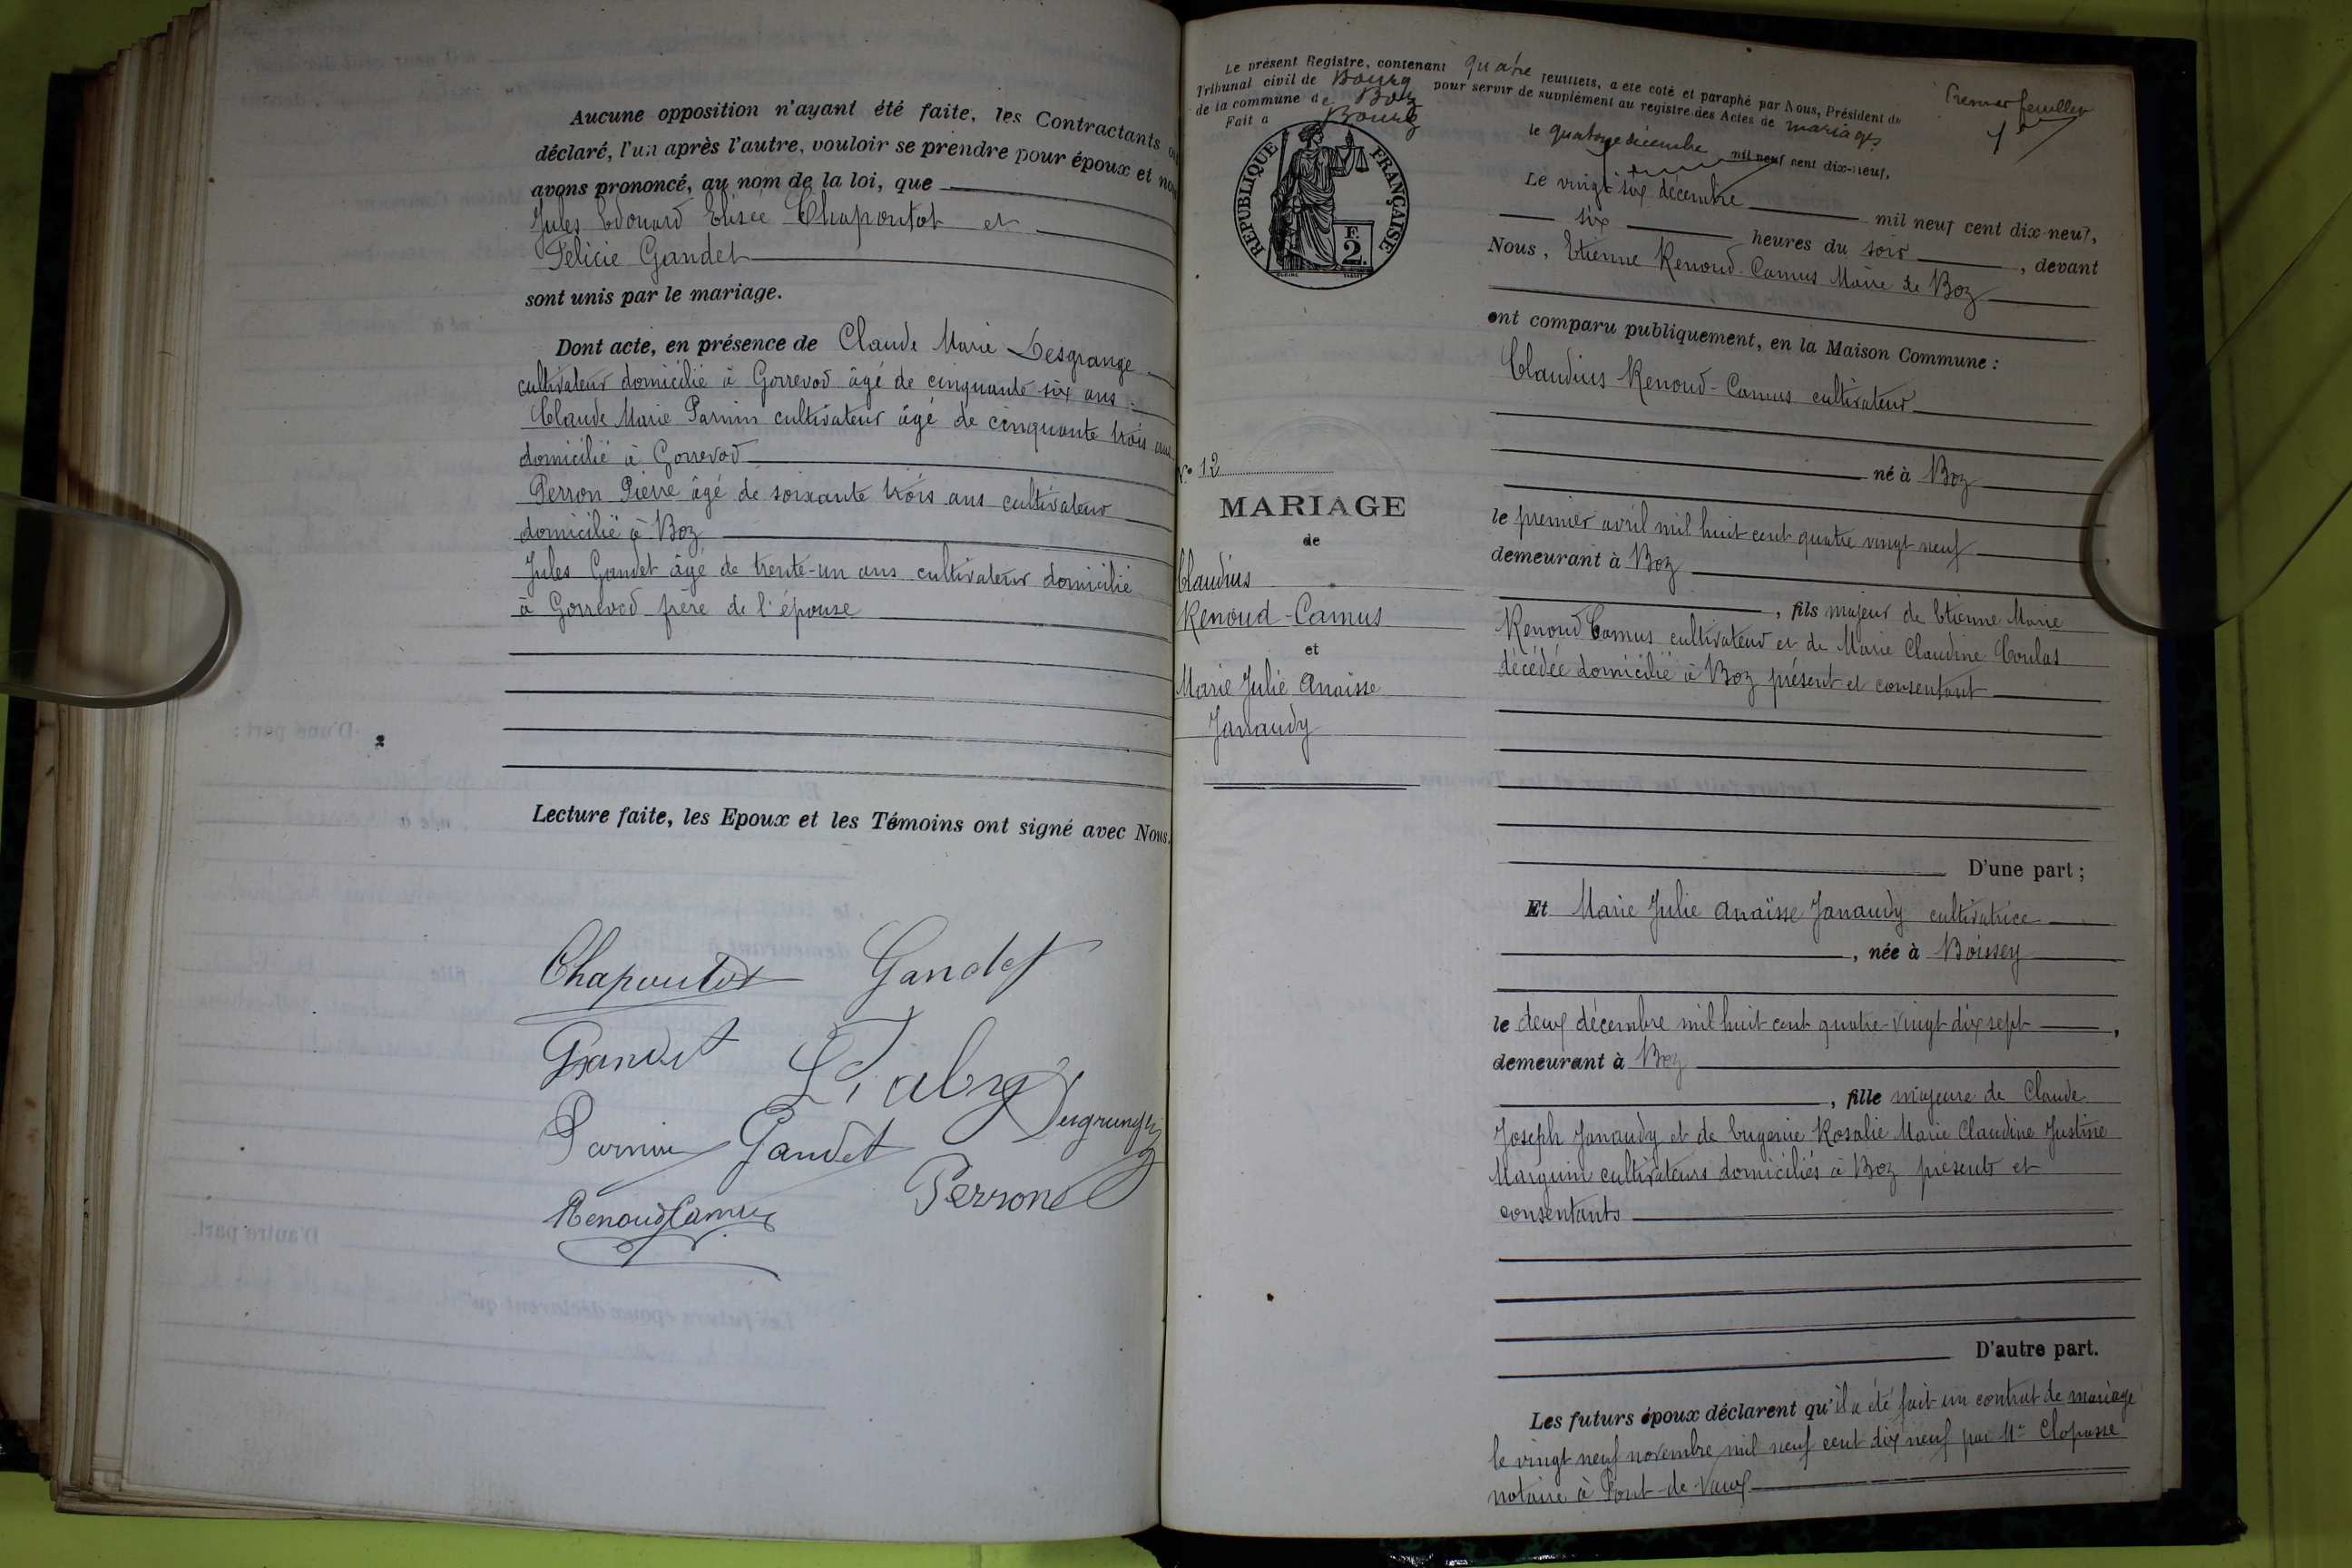 Aucune opposition n'ayant été faite, les Contractants
déclaré, l'un après l'autre, vouloir se prendre pour époux et
avons prononcé, au nom de la loi, que
Jules Edouard Elisée Chapoutot et
Félicie Gandet
sont unis par le mariage.
Dont acte, en présence de Claude Marie Desgrange
cultivateur domicilié à Gorrevod âgé de cinquante six ans
Claude Marie Parnin cultivateur âgé de cinquante trois ans
domicilié à Gorrevod
Perron Pierre âgé de soixante trois ans cultivateur
domicilié à Boz
Jules Gandet âgé de trente-un ans cultivateur domicilié
à Gorrevod frère de l'épouse
Lecture faite, les Epoux et les Témoins ont signé avec Nous.
Chapoutot Gandet
Gandet
Parnin Gandet
Perron
Renoud Camus
Le présent Registre, contenant quatre feuillets, a été coté et paraphé par Nous, Président du
Tribunal civil de Bourg pour servir de supplément au registre des Actes de mariages
de la commune de Boz
Fait à Bourg le quatorze décembre mil neuf cent dix-neuf.
Premier feuillet
RÉPUBLIQUE FRANÇAISE
F.
2.
Le vingt six décembre mil neuf cent dix-neuf,
six heures du soir, devant
Nous, Etienne Renoud-Camus Maire de Boz
ont comparu publiquement, en la Maison Commune :
Claudius Renoud-Camus cultivateur
né à Boz
le premier avril mil huit cent quatre vingt neuf
demeurant à Boz
, fils majeur de Etienne Marie
Renoud Camus cultivateur et de Marie Claudine Coulas
décédée domicilié à Boz présent et consentant
D'une part ;
N° 12
MARIAGE
de
Claudius
Renoud-Camus
et
Marie Julie Anaïsse
Janaudy
Et Marie Julie Anaïsse Janaudy cultivatrice
, née à Boissey
le deux décembre mil huit cent quatre-vingt dix sept,
demeurant à Boz
, fille majeure de Claude
Joseph Janaudy et de Eugenie Rosalie Marie Claudine Justine
Marguin cultivateurs domiciliés à Boz présents et
consentants
D'autre part.
Les futurs époux déclarent qu'il a été fait un contrat de mariage
le vingt neuf novembre mil neuf cent dix neuf par Me Clopasse
notaire à Pont-de-Vaux